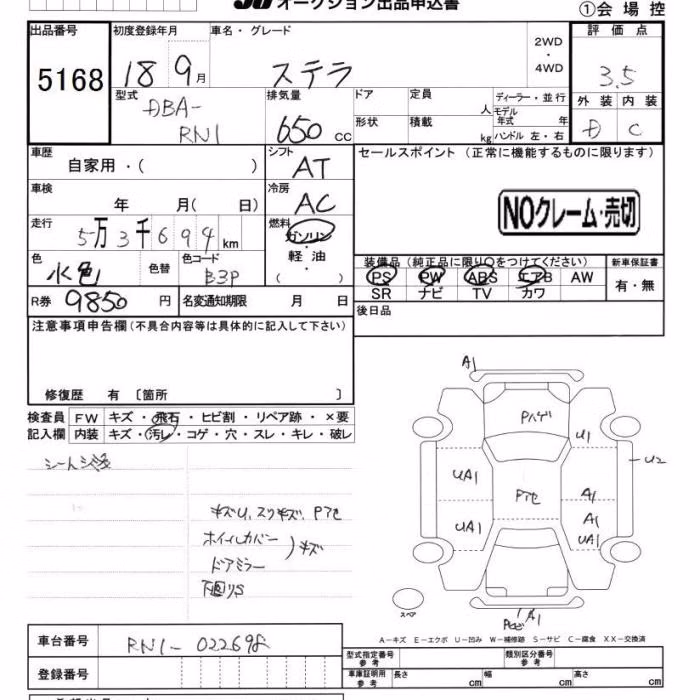 JU オークション出品申込書
①会場控
出品番号 初度登録年月 車名・グレード 2WD・4WD 評価点
5168 18 9月 ステラ 3.5
型式 排気量 ドア 定員 人 ディーラー・並行 外装 内装
DBA- RN1 650 cc 形状 積載 kg モデル年式 年 ハンドル 左・右 D C
車歴 自家用・( ) シフト AT セールスポイント (正常に機能するものに限ります)
車検 年 月( 日) 冷房 AC
NOクレーム・売切
走行 5万3千694km 燃料 ガソリン・軽油・( )
色 水色 色替 色コード B3P
装備品 (純正品に限り○をつけてください) 新車保証書
PS PW ABS エアB AW 有・無
SR ナビ TV カワ
R券 9850円 名変通知期限 月 日 後日品
注意事項申告欄(不具合内容等は具体的に記入して下さい)
修復歴 有 〔箇所 〕
検査員 FW キズ・飛石・ヒビ割・リペア跡・×要
記入欄 内装 キズ・汚レ・コゲ・穴・スレ・キレ・破レ
A1
Pハゲ
U1
U2
UA1
Pアセ
A1
A1
UA1
UA1
A1
スペア
キズU、スリキズ、Pアセ
ホイールカバー
ドアミラー
キズ
下回りS
A－キズ E－エクボ U－凹み W－補修跡 S－サビ C－腐食 XX－交換済
車台番号 RN1-022698
型式指定番号 参考 類別区分番号 参考
登録番号 車庫証明用 参考 長さ cm 幅 cm 高さ cm